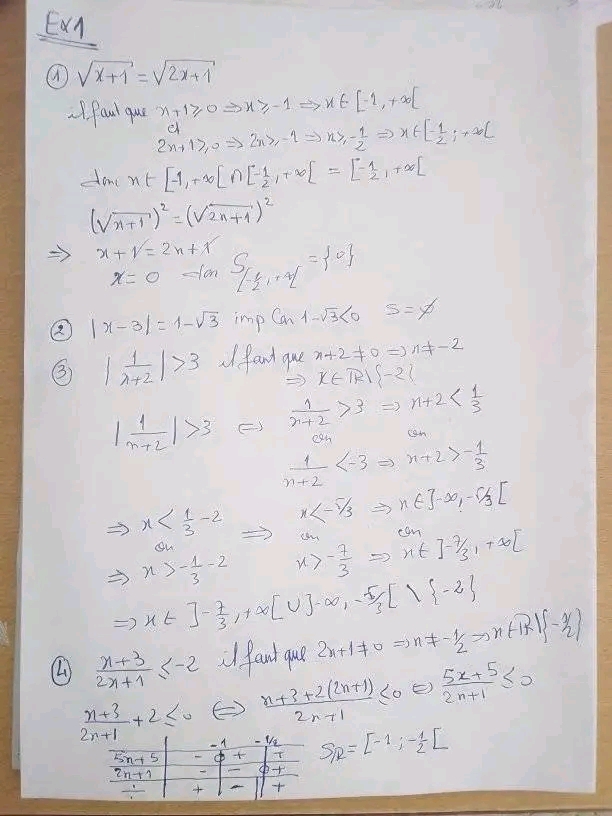 Ex1
① √x+1 = √2x+1
il faut que x+1≥0 ⇒ x≥-1 ⇒ x∈[-1,+∞[
et
2x+1≥0 ⇒ 2x≥-1 ⇒ x≥-1/2 ⇒ x∈[-1/2;+∞[
donc x∈[-1,+∞[∩[-1/2,+∞[ = [-1/2,+∞[
(√x+1)² = (√2x+1)²
⇒ x+1 = 2x+1
x = 0 don S[-1/2,+∞[ = {0}
② |x-3| = 1-√3 imp Car 1-√3<0 S=∅
③ |1/x+2| >3 il faut que x+2≠0 ⇒ x≠-2
⇒ x∈ℝ\{-2{
|1/x+2| >3 ⇔ 1/x+2 >3 ⇒ x+2<1/3
ou ou
1/x+2 <-3 ⇒ x+2>-1/3
⇒ x<1/3-2 ⇒ x<-5/3 ⇒ x∈]-∞,-5/3[
ou ou ou
⇒ x>-1/3-2 x>-7/3 ⇒ x∈]-7/3,+∞[
⇒ x∈]-7/3,+∞[∪]-∞,-5/3[\{-2}
④ x+3/2x+1 ≤-2 il faut que 2x+1≠0 ⇒ x≠-1/2 ⇒ x∈ℝ\{-1/2}
x+3/2x+1 +2≤0 ⇔ x+3+2(2x+1)/2x+1 ≤0 ⇔ 5x+5/2x+1 ≤0
-1 -1/2
5x+5 - 0 + +
2x+1 - - 0 +
÷ + - +
Sℝ = [-1;-1/2[